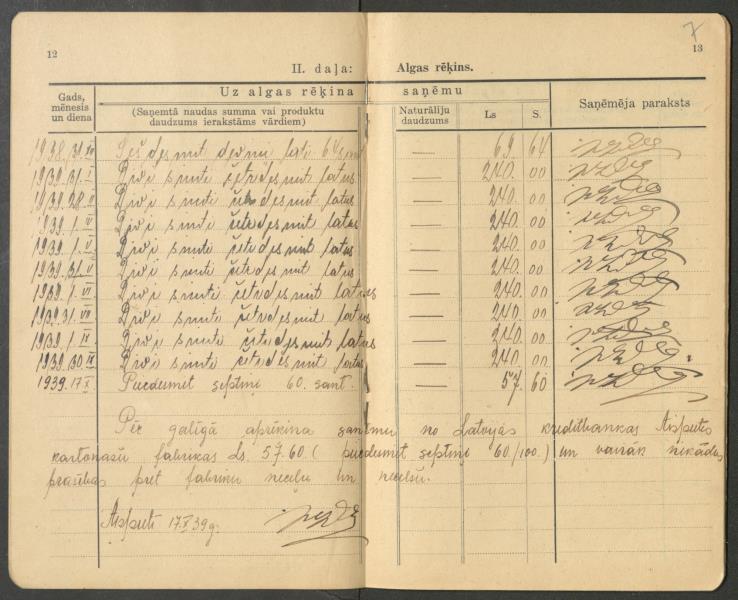 7
12
13
II. daļa: Algas rēķins.
Gads, mēnesis un diena
Uz algas rēķina saņēmu
(Saņemtā naudas summa vai produktu daudzums ierakstāms vārdiem)
Naturāliju daudzums
Ls
S.
Saņēmēja paraksts
1938. 31. XII Sešdesmit deviņi lati 64 sant — 69. 64
1939. 31. I Divi simti četrdesmit latus — 240. 00
1939. 28. II Divi simti četrdesmit latus — 240. 00
1939. 1. IV Divi simti četrdesmit latus — 240. 00
1939. 1. V Divi simti četrdesmit latus — 240. 00
1939. 31. V Divi simti četrdesmit latus — 240. 00
1939. 1. VII Divi simti četrdesmit latus — 240. 00
1939. 31. VII Divi simti četrdesmit latus — 240. 00
1939. 1. IX Divi simti četrdesmit latus — 240. 00
1939. 30. IX Divi simti četrdesmit latus — 240. 00
1939. 17. X Piecdesmit septiņi 60. sant. — 57. 60
Pēc galīgā aprēķina saņēmu no Latvijas kredītbankas Aizputes
kartonažu fabrikas Ls. 57.60 ( piecdesmit septiņi 60/100.) un vairāk nekādas
prasības pret fabriku neceļu un necelšu.
Aizputē 17.X 39g.